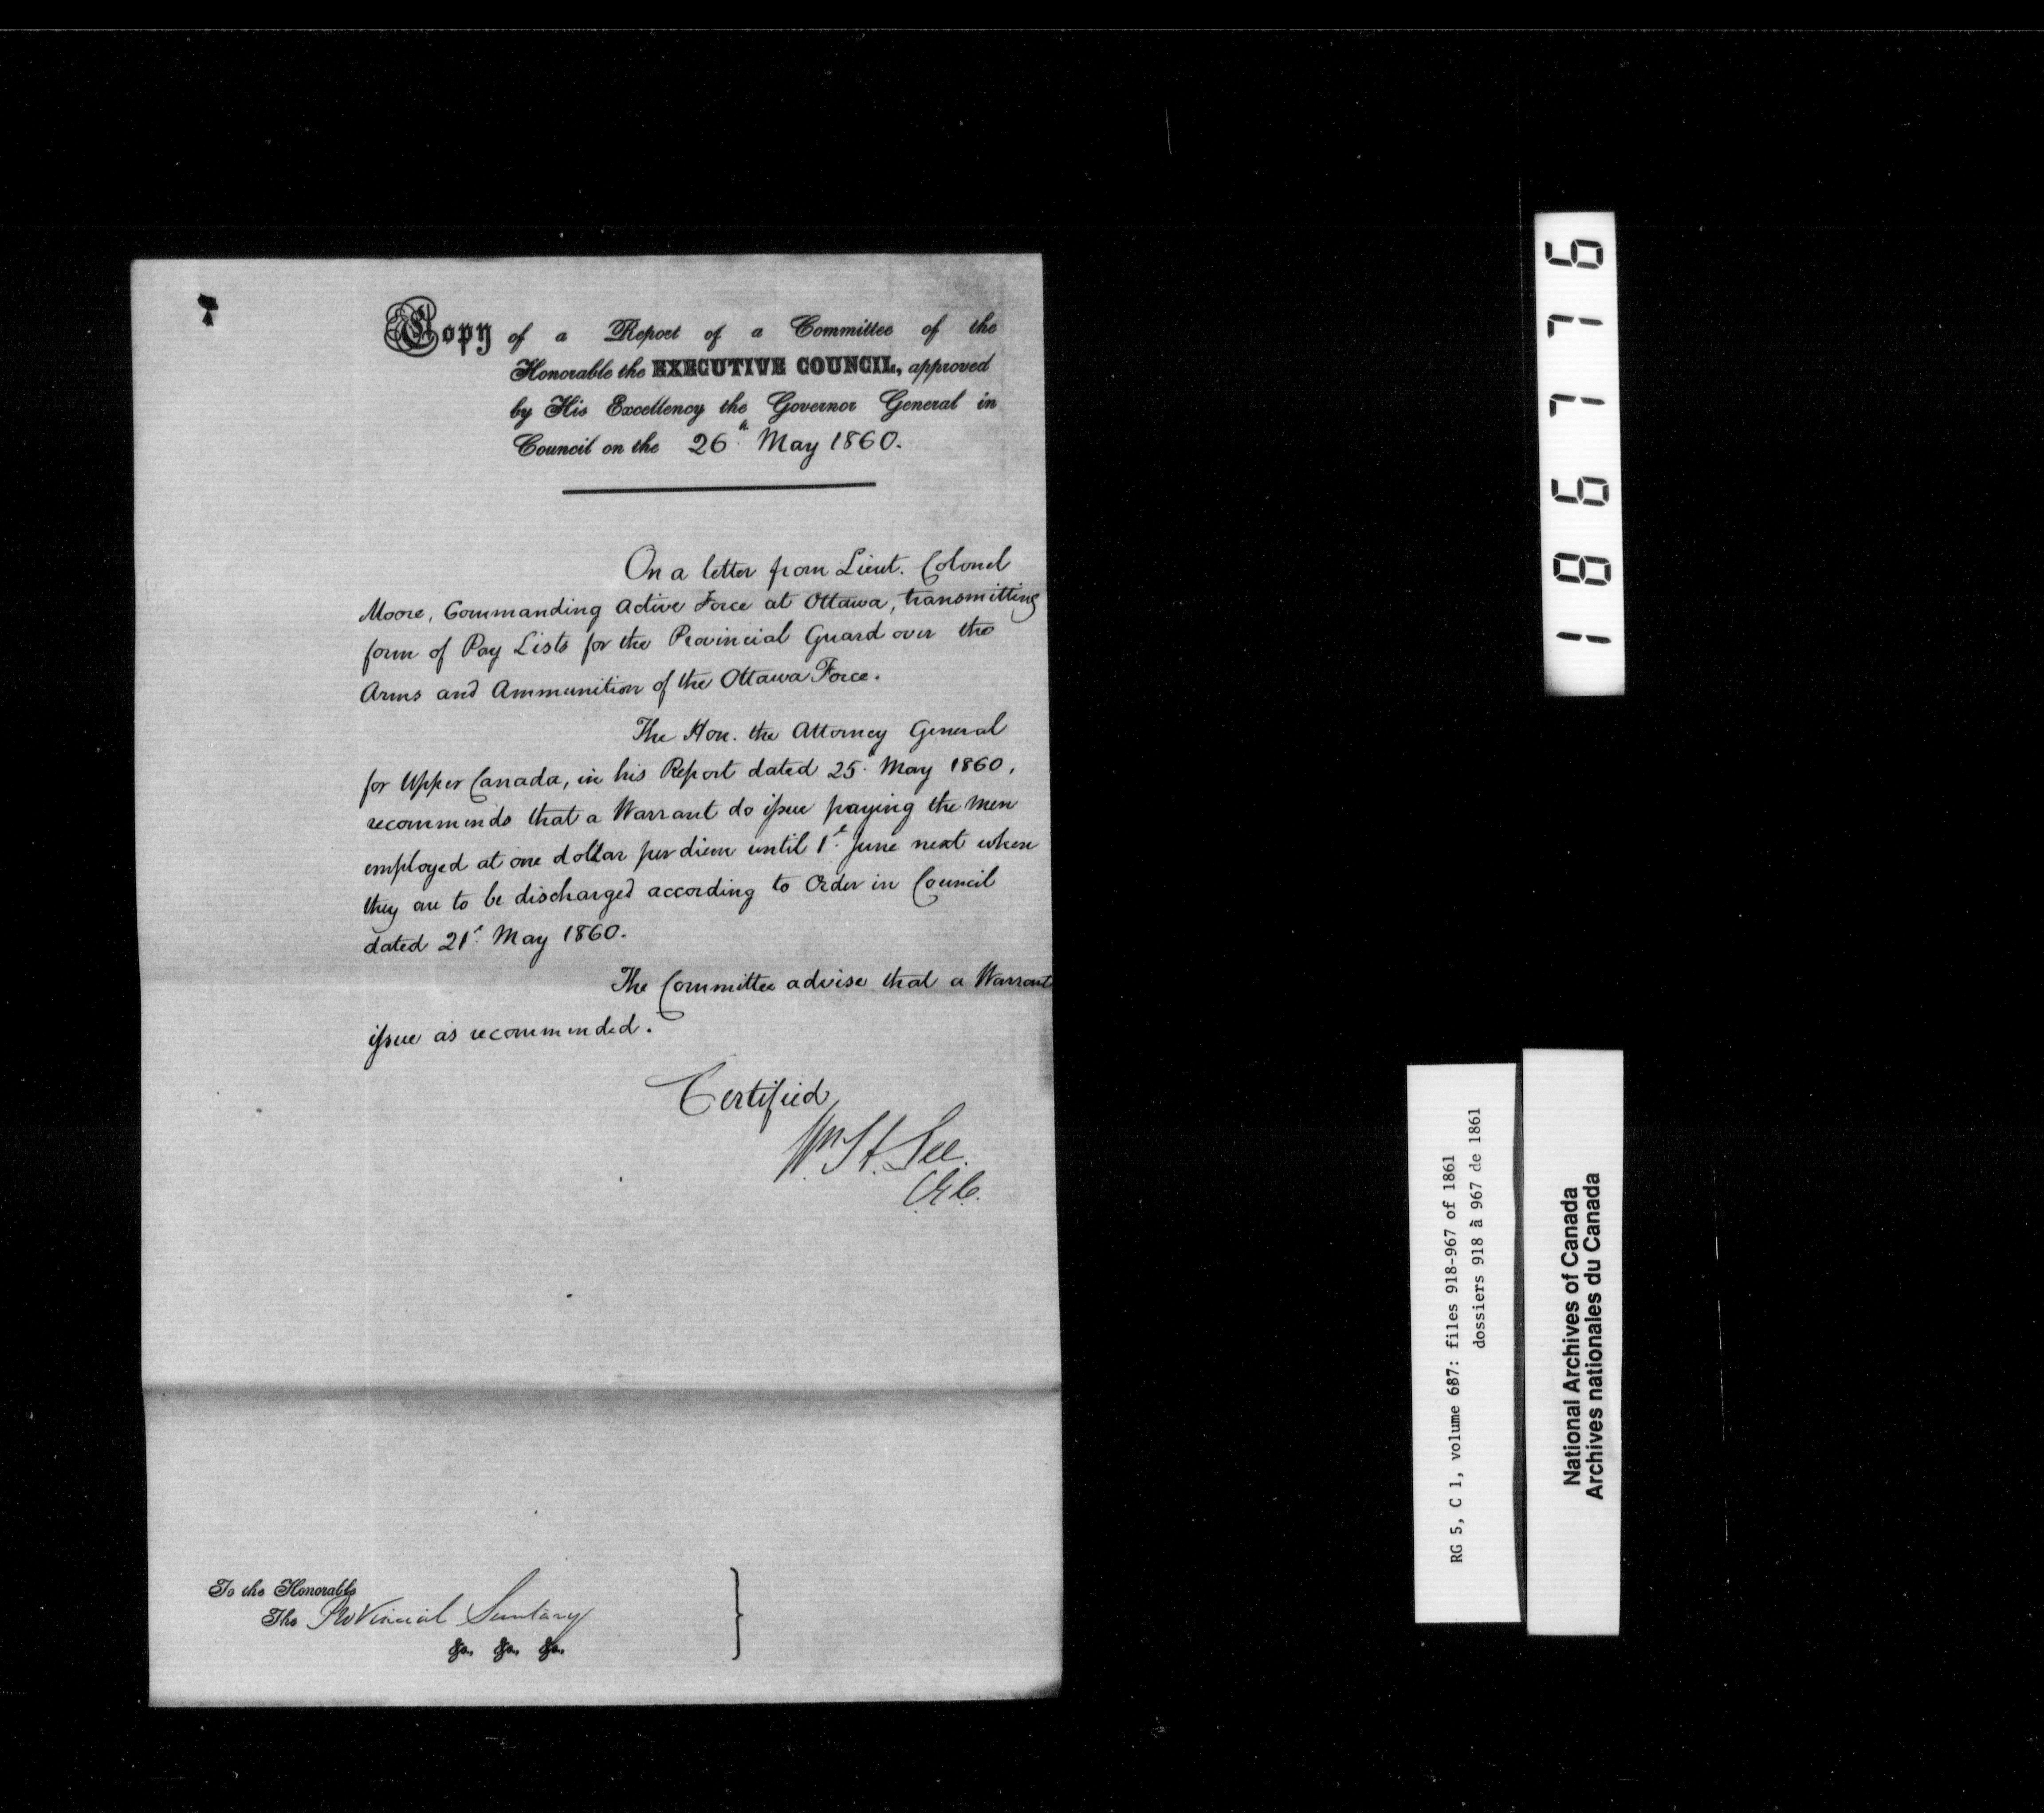 Copy of a Report of a Committee of the
Honorable the EXECUTIVE COUNCIL, approved
by His Excellency the Governor General in
Council on the 26th May 1860.
On a letter from Lieut. Colonel
Moore, Commanding Active Force at Ottawa, transmitting
form of Pay Lists for the Provincial Guard over the
Arms and Ammunition of the Ottawa Force.
The Hon. the Attorney General
for Upper Canada, in his Report dated 25th May 1860,
recommends that a Warrant do issue paying the men
employed at one dollar per diem until 1st June next when
they are to be discharged according to Order in Council
dated 21st May 1860.
The Committee advise that a Warrant
issue as recommended.
Certified
Wm H. Lee
C.E.C.
To the Honorable
The Provincial Secretary
&c. &c. &c.
186776
RG 5, C 1, volume 687: files 918-967 of 1861
dossiers 918 à 967 de 1861
National Archives of Canada
Archives nationales du Canada